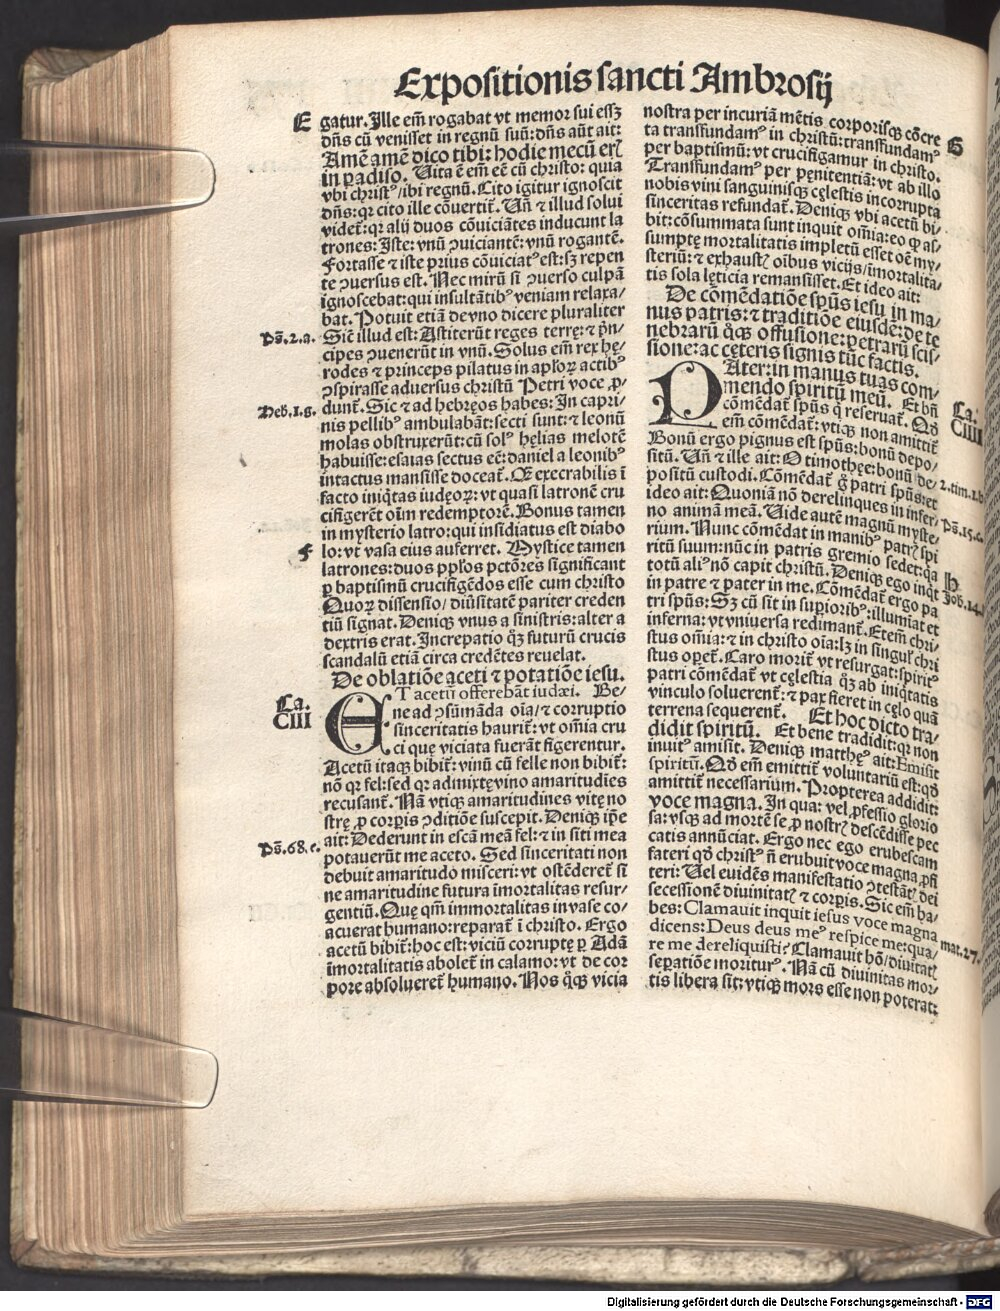 Expositionis sancti Ambrosij
E
gatur. Ille em̄ rogabat vt memor sui essꝫ
dñs cū venisset in regnū suū: dñs aūt ait:
Amē amē dico tibi: hodie mecū erꝭ
in ꝑadiso. Uita ē em̄ eē cū christo: quia
vbi christꝰ / ibi regnū. Cito igitur ignoscit
dñs: qꝛ cito ille cōuertit̄. Uñ ⁊ illud solui
videt̄: qꝛ alij duos cōuiciātes inducunt la
trones: Iste: vnū ꝯuiciantē: vnū rogantē.
Fortasse ⁊ iste prius cōuiciatꝰ est: sꝫ repen
te ꝯuersus est. Nec mirū si ꝯuerso culpā
ignoscebat: qui insultātibꝰ veniam relaxa/
bat. Potuit etiā de vno dicere pluraliter
Ps̄. 2. a.
Sic̄ illud est: Astiterūt reges terrę: ⁊ p̄n-
cipes ꝯuenerūt in vnū. Solus em̄ rex hę-
rodes ⁊ princeps pilatus in aplōꝝ actibꝰ
ꝯspirasse aduersus christū Petri voce ꝓ-
Heb. 1. g.
dunt̄. Sic ⁊ ad hebręos habes: In capri-
nis pellibꝰ ambulabāt: secti sunt: ⁊ leonū
molas obstruxerūt: cū solꝰ hęlias melotē
habuisse: esaias sectus eē: daniel a leonibꝰ
intactus mansisse doceat̄. O execrabilis ī
facto iniq̄tas iudęoꝝ: vt quasi latronē cru
cifigerēt oīm redemptorē. Bonus tamen
in mysterio latro: qui insidiatus est diabo
F
lo: vt vasa eius auferret. Mystice tamen
latrones: duos pplōs pctōres significant
ꝑ baptismū crucifigēdos esse cum christo
Quoꝝ dissensio / diūsitatē pariter creden
tiū signat. Deniqꝫ vnus a sinistris: alter a
dextris erat. Increpatio qꝫ futurū crucis
scandalū etiā circa credētes reuelat.
De oblatiōe aceti ⁊ potatiōe iesu.
Ca.
CIII
ET acetū offerebāt iudæi. Be-
ne ad ꝯsūmāda oīa / ⁊ corruptio
sinceritatis haurit̄: vt omīa cru
ci quę viciata fuerāt figerentur.
Acetū itaqꝫ bibit̄: vinū cū felle non bibit̄:
nō qꝛ fel: sed qꝛ admixtę vino amaritudīes
recusant̄. Nā vtiqꝫ amaritudines vitę no
strę ꝓ corꝑis ꝯditiōe suscepit. Deniqꝫ ip̄e
Ps̄. 68. e.
ait: Dederunt in escā meā fel: ⁊ in siti mea
potauerūt me aceto. Sed sinceritati non
debuit amaritudo misceri: vt ostēderet̄ si
ne amaritudine futura īmortalitas resur-
gentiū. Quę qm̄ immortalitas in vase co/
acuerat humano: reparat̄ ī christo. Ergo
acetū bibit̄: hoc est: viciū corruptę ꝑ Adā
īmortalitatis abolet̄ in calamo: vt de cor
pore absolueret̄ humano. Nos q̄qꝫ vicia
nostra per incuriā mētis corporisqꝫ cōcre
G
ta transfundamꝰ in christū: transfundamꝰ
per baptismū: vt crucifigamur in christo.
Transfundamꝰ per pęnitentiā: vt ab illo
nobis vini sanguinisqꝫ cęlestis incorrupta
sinceritas refundat̄. Deniqꝫ vbi acetū bi-
bit: cōsummata sunt inquit omīa: eo ꝙ as/
sumptę mortalitatis impletū esset oē my/
steriū: ⁊ exhaustꝭ oībus vicijs / īmortalita/
tis sola lęticia remansisset. Et ideo ait:
De cōmēdatiōe spūs iesu in ma/
nus patris: ⁊ traditiōe eiusdē: de te
nebrarū q̄qꝫ offusione: petrarū scis/
sione: ac cęteris signis tūc factis.
Ca.
CIIII
PAter: in manus tuas com/
mendo spiritū meū. Et bn̄
cōmēdat̄ spūs q̇ reseruat̄. Qd̄
em̄ cōmēdat̄: vtiqꝫ non amittit̄
Bonū ergo pignus est spūs: bonū depo/
sitū. Uñ ⁊ ille ait: O timothęe: bonū de/
2. tim. 1. b
positū custodi. Cōmēdat̄ g̊ patri spūs: et
ideo ait: Quoniā nō derelinques in infer/
no animā meā. Uide autē magnū myste/
Ps̄. 15. c.
rium. Nunc cōmēdat in manibꝰ patrꝭ spi
ritū suum: nūc in patris gremio sedet: q̇a
totū aliꝰ nō capit christū. Deniqꝫ ego inq̇t
H
Joh. 14.
in patre ⁊ pater in me. Cōmēdat̄ ergo pa
tri spūs: Sꝫ cū sit in suꝑioribꝰ: illumīat et
inferna: vt vniuersa redimant̄. Etem̄ chri/
stus omīa: ⁊ in christo oīa: lꝫ in singulꝭ chri
stus oꝑet̄. Caro morit̄ vt resurgat: spiritꝰ
patri cōmēdat̄ vt cęlestia qꝫ ab iniq̄tatis
vinculo soluerent̄: ⁊ pax fieret in cęlo quā
terrena sequerent̄. Et hoc dicto tra/
didit spiritū. Et bene tradidit: qꝛ non
inuitꝰ amisit. Deniqꝫ matthęꝰ ait: Emisit
spiritū. Qd̄ em̄ emittit̄ voluntariū est: qd̄
amittit̄ necessarium. Propterea addidit:
voce magna. In qua: vel ꝓfessio glorio
sa: vsqꝫ ad mortē se ꝓ nostrꝭ descēdisse pec
catis annūciat. Ergo nec ego erubescam
fateri qd̄ christꝰ n̄ erubuit voce magna ꝓfi
teri: Uel euidēs manifestatio ꝯtestātꝭ dei
secessionē diuinitatꝭ ⁊ corꝑis. Sic em̄ ha/
bes: Clamauit inquit iesus voce magna
mat. 27.
dicens: Deus deus meꝰ respice me: qua/
re me dereliquisti? Clamauit hō / diuitatꝭ
seꝑatiōe moriturꝰ. Nā cū diuinitas mor/
tis libera sit: vtiqꝫ mors esse non poterat:
Digitalisierung gefördert durch die Deutsche Forschungsgemeinschaft -
DFG